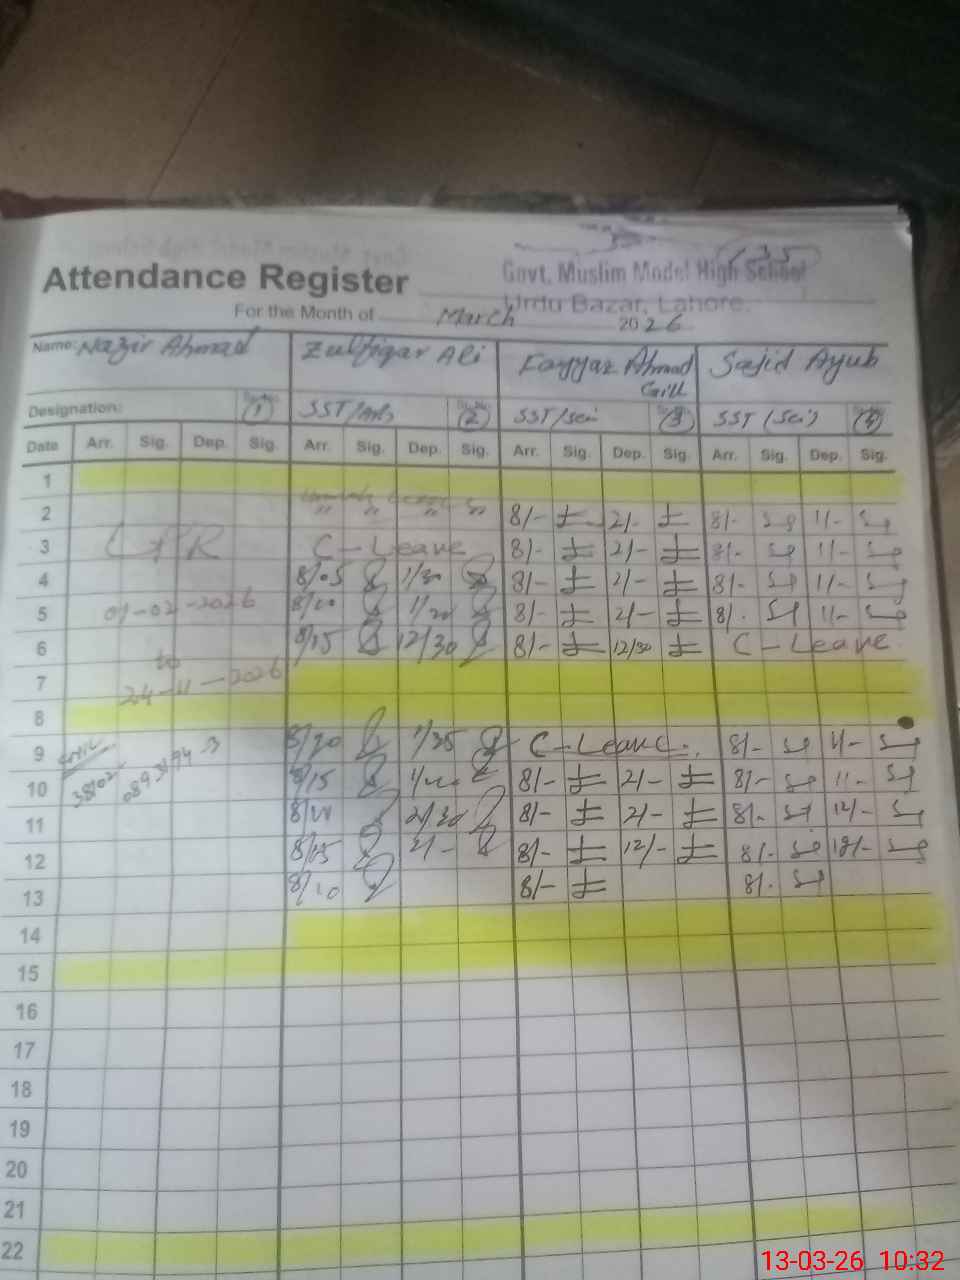 Attendance Register
Govt. Muslim Model High School
Urdu Bazar, Lahore.
For the Month of March 2026
Name: Nazir Ahmad Zulfiqar Ali Fayyaz Ahmad Gill Sajid Ayub
Designation: (1) SST/Arts (2) SST/Sci (3) SST (Sci) (4)
Date Arr. Sig. Dep. Sig. Arr. Sig. Dep. Sig. Arr. Sig. Dep. Sig. Arr. Sig. Dep. Sig.
1
2 " " " " 8/- 2/- 8/- 11/-
3 LPR C-Leave 8/- 2/- 8/- 11/-
4 8/05 1/30 8/- 2/- 8/- 11/-
5 01-02-2026 8/- 2/- 8/- 11/-
6 to 8/15 12/30 8/- 12/30 C-Leave
7 24-11-2026
8
9 8/20 1/35 C-Leave 8/-
10 8/15 8/- 2/- 8/- 11-
11 2/30 8/- 2/- 8/- 12/-
12 8/15 2/- 8/- 12/- 8/- 12/-
13 8/10 8/- 8/-
14
15
16
17
18
19
20
21
22
13-03-26 10:32